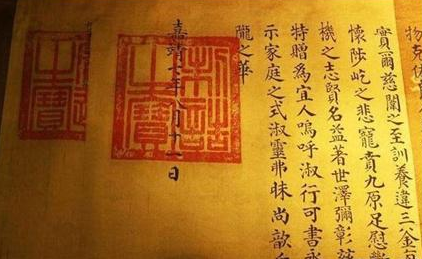 物克
實爾慈闈之至訓養違三釜
懷陟屺之悲寵賁九原足慰
機之志賢名益著世澤彌彰茲
特贈為宜人嗚呼淑行可書永
示家庭之式淑靈弗昧尚歆
隴之華
嘉靖年八月十一日
制誥之寶
之寶